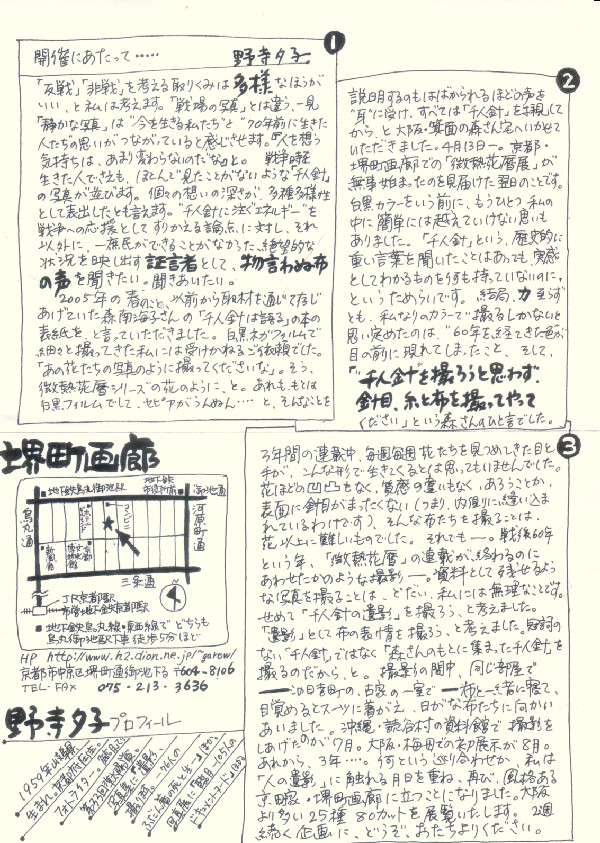 1
開催にあたって‥‥‥ 野寺夕子
「反戦」「非戦」を考える取りくみは多様なほうが
いい、と私は考えます。「戦場の写真」とは違う、一見
「静かな写真」は"今を生きる私たち"と"70年前に生きた
人たちの思い"がつながっていると感じさせます。『人を想う
気持ちは、あまり変わらないのだな』と。 戦争時に
生きた人でさえも、ほとんど見たことがないような「千人針」
の写真が並びます。個々の想いの深さが、多種多様性
として表出したとも言えます。「千人針に注ぐエネルギー」を
戦争への応援としてすりかえる論点に対し、それ
以外に、一庶民ができることがなかった、絶望的な
状況を映し出す証言者として、物言わぬ布
の声を聞きたい。聞きあいたい。
2005年の春のこと、以前から取材を通じて存じ
あげていた森南海子さんの『千人針は語る』の本の
表紙を、と言っていただきました。白黒ネガフィルムで
細々と撮ってきた私には受けかねるご依頼でした。
「あの花たちの写真のように撮ってくださいな」。そう、
微熱花暦シリーズの花のように、と。あれも、もとは
白黒フィルムでして、セピアがうんぬん‥‥と、そんなことを
2
説明するのもはばかられるほどの声を
"耳"に受け、すべては「千人針」を拝見して
から、と大阪・箕面の森さん宅へいかせて
いただきました。4月13日―。京都・
堺町画廊での「微熱花暦展」が
無事始まったのを見届けた翌日のことです。
白黒カラーをいう前に、もうひとつ、私の
中に簡単には越えていけない思いも
ありました。「千人針」という、歴史的に
重い言葉を聞いたことはあっても、実感
としてわかるものを何も持っていないのに。
というためらいです。結局、力至らず
とも、私なりのカラーで撮るしかないと
思い定めたのは、"60年を経てきた色"が
目の前に現れてしまったこと、そして、
「"千人針"を撮ろうと思わず、
針目、糸と布を撮ってやって
ください」という森さんのひと言でした。
3
3年間の連載中、毎週毎週花たちを見つめてきた目と
手が、こんな形で生きてくるとは思ってもいませんでした。
花ほどの凹凸もなく、質感の違いもなく、あろうことか、
表面に針目がまったくない(つまり、内側に縫い込ま
れているわけです)、そんな布たちを撮ることは、
花以上に難しいものでした。それでも―。戦後60年
という年、「微熱花暦」の連載が終わるのに
あわせたかのような撮影―。資料として残せるよう
な写真を撮ることは、どだい、私には無理なことです。
せめて「千人針の遺影」を撮ろう、と考えました。
「遺影」として布の表情を撮ろう、と考えました。
ない「千人針」ではなく「森さんのもとに集まった千人針」を
撮るのだから、と。撮影の間中、同じ部屋で
―この吉田町の、古家の一室で―布と一緒に寝て、
目覚めるとスーツに着がえ、日がな布たちに向かい
あいました。沖縄・読谷村の資料館で撮影を
しあげたのが7月。大阪・梅田での初展示が8月。
あれから、3年‥‥。何という巡り合わせか、私は
「人の遺影」に触れる月日を重ね、再び、風格ある
京町家・堺町画廊に立つことになりました。大阪
より多い25種80カットを展覧いたします。2週
続く企画に、どうぞ、おたちよりください。
堺町画廊
地下鉄烏丸御池駅
地下鉄市役所前
御池通
烏丸通
河原町通
コンビニ
新風館
京都文化博物館
三条通
JR京都駅
市営地下鉄京都駅
■地下鉄烏丸線・東西線でどちらも
烏丸御池駅下車徒歩5分ほど
HP http://www.h2.dion.ne.jp/~garow/
京都市中京区堺町通御池下る 〒604-8106
TEL・FAX 075-213-3636
野寺夕子プロフィール
1959年岐阜県
生まれ。京都府在住。
フォトライター。